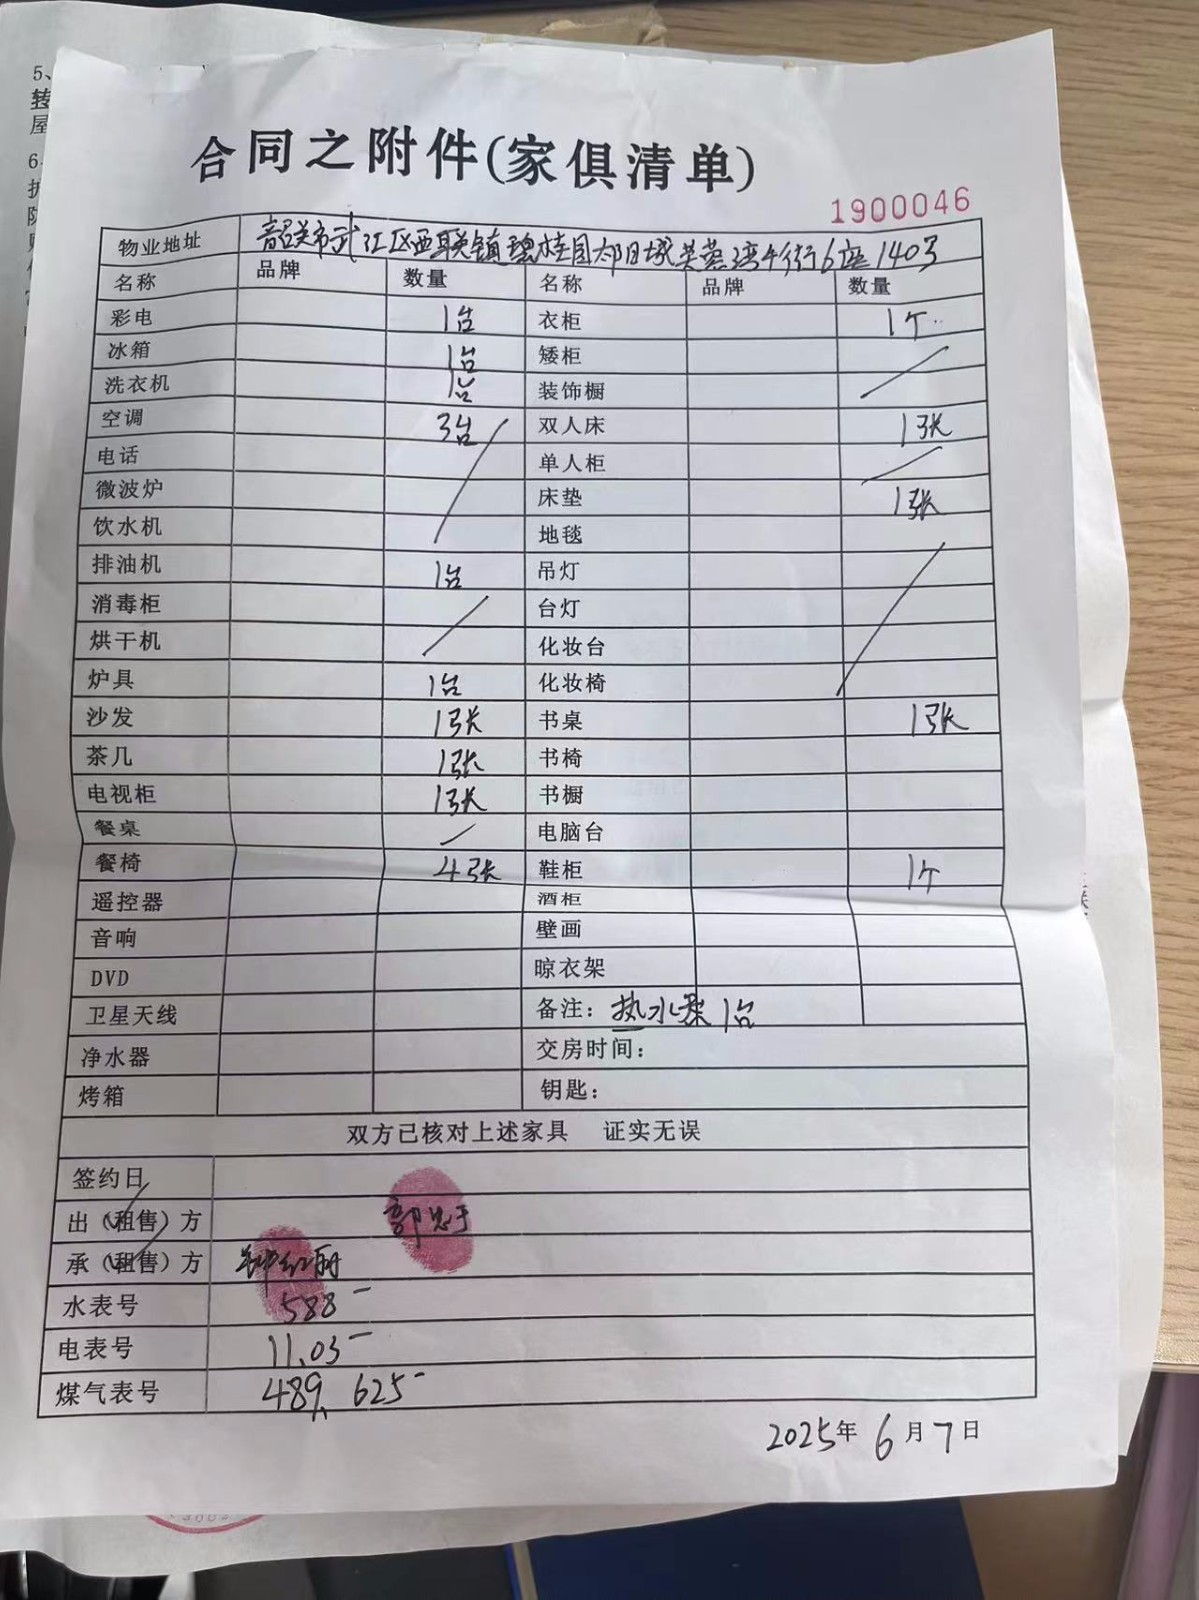 5、
转
屋
6、
合同之附件(家俱清单)
1900046
物业地址 韶关市武江区西联镇碧桂园太阳城芙蓉湾牛街6座1403
名称 品牌 数量 名称 品牌 数量
彩电 1台 衣柜 1个
冰箱 1台 矮柜
洗衣机 1台 装饰橱
空调 3台 双人床 1张
电话 单人柜
微波炉 床垫 1张
饮水机 地毯
排油机 1台 吊灯
消毒柜 台灯
烘干机 化妆台
炉具 1台 化妆椅
沙发 1张 书桌 1张
茶几 1张 书椅
电视柜 1张 书橱
餐桌 电脑台
餐椅 4张 鞋柜 1个
遥控器 酒柜
音响 壁画
DVD 晾衣架
卫星天线 备注：热水器1台
净水器 交房时间：
烤箱 钥匙：
双方已核对上述家具 证实无误
签约日
出（租售）方
承（租售）方 钟红丽
水表号 588
电表号 11.03
煤气表号 489.625
2025年6月7日